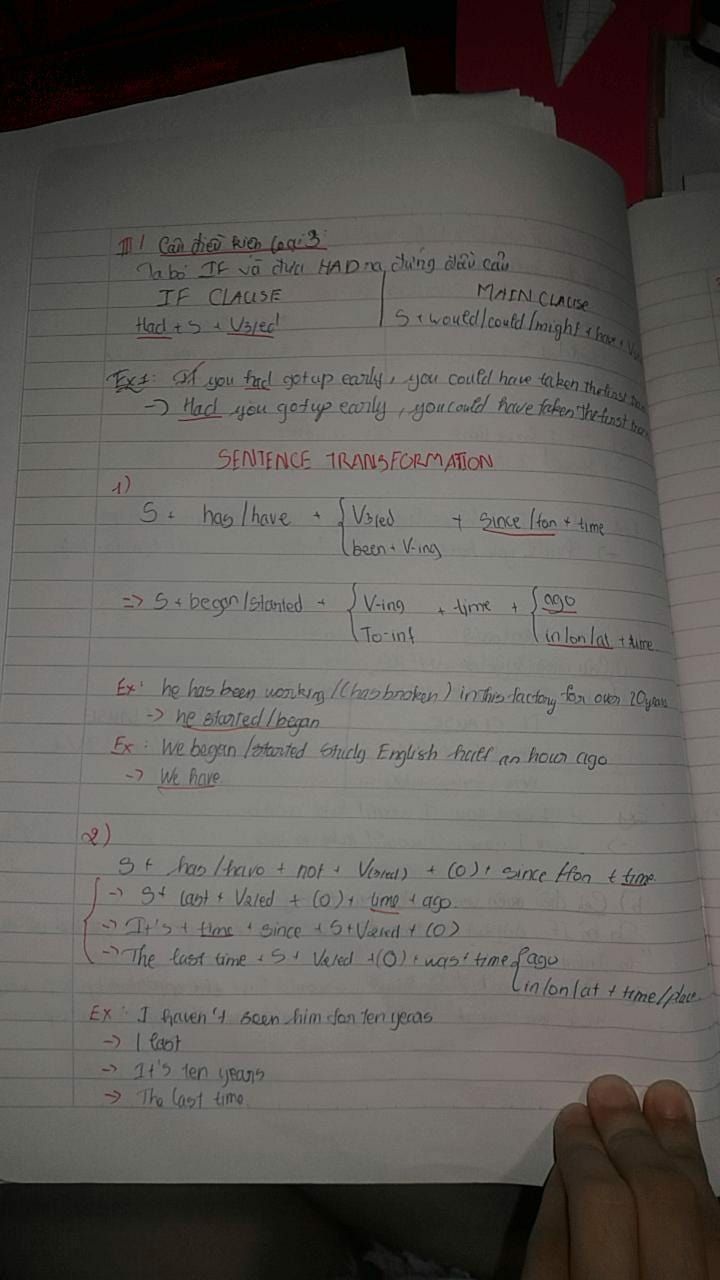 III / Câu điều kiện loại 3:
Ta bỏ IF và đưa HAD ra đứng đầu câu
IF CLAUSE | MAIN CLAUSE
Had + S + V3/ed | S + would/could/might + have + V3
Ex1: If you had got up early, you could have taken the first train
-> Had you got up early, you could have taken the first train
SENTENCE TRANSFORMATION
1)
S + has/have + { V3/ed + since/for + time
been + V-ing
=> S + began/started + { V-ing + time + { ago
To-inf in/on/at + time
Ex: he has been working/(has broken) in this factory for over 20 years
-> he started/began
Ex: We began/started study English half an hour ago
-> We have
2)
S + has/have + not + V(3/ed) + (O) + since/for + time.
-> S + last + V2/ed + (O) + time + ago.
-> It's + time + since + S + V2/ed + (O)
-> The last time + S + V2/ed + (O) + was + time { ago
in/on/at + time/place
Ex: I haven't seen him for ten yeras
-> I last
-> It's ten years
-> The last time.